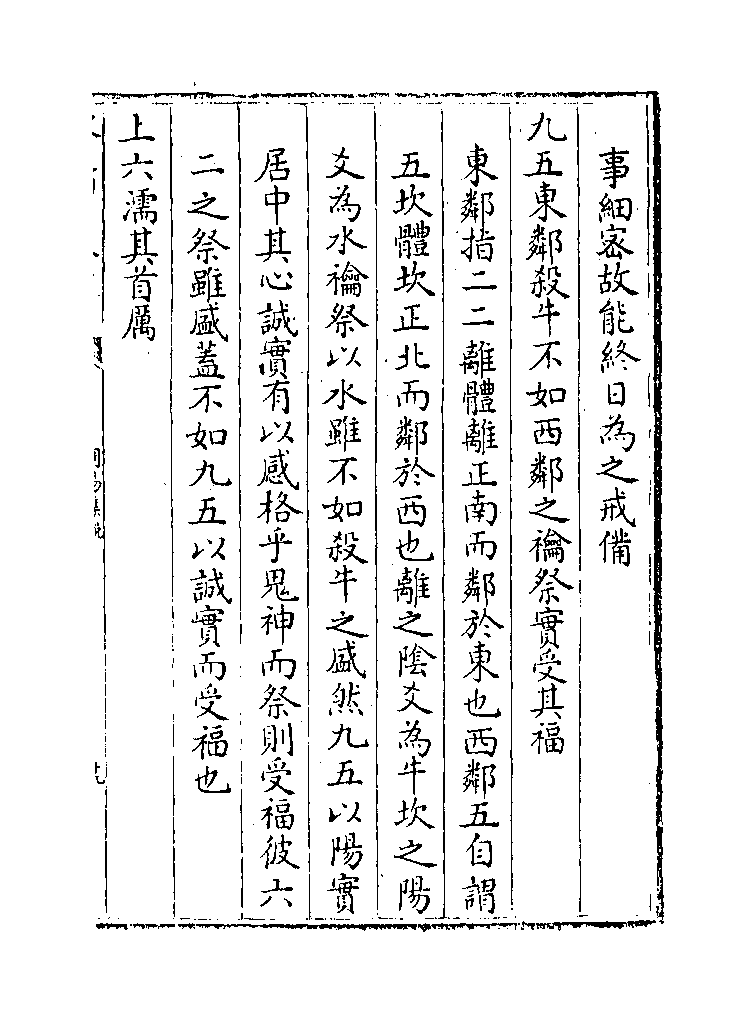 事細密故能終日為之戒備
九五東鄰殺牛不如西鄰之禴祭實受其福
東鄰指二二離體離正南而鄰於東也西鄰五自謂
五坎體坎正北而鄰於西也離之陰爻為牛坎之陽
爻為水禴祭以水雖不如殺牛之盛然九五以陽實
居中其心誠實有以感格乎鬼神而祭則受福彼六
二之祭雖盛蓋不如九五以誠實而受福也
上六濡其首厲